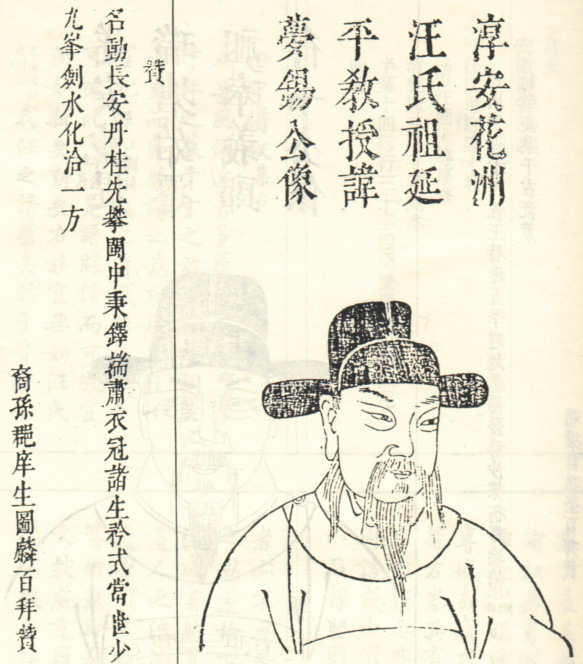 淳安花洲
汪氏祖延
平教授諱
夢錫公像
贊
名動長安丹桂先攀閩中秉鐸端肅衣冠諸生矜式當世少
九峯劍水化洽一方
裔孫邑庠生圖麟百拜贊